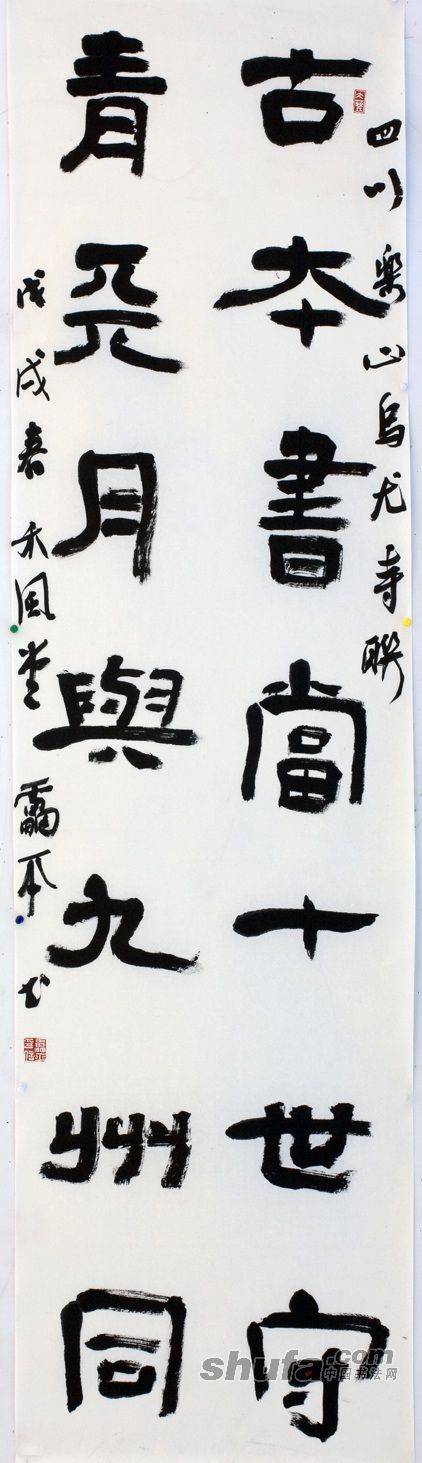 四川樂山烏尤寺聯
古本書當十世守
青天月與九州同
戊戌春禾風堂 平书
shufa.com
中国书法网